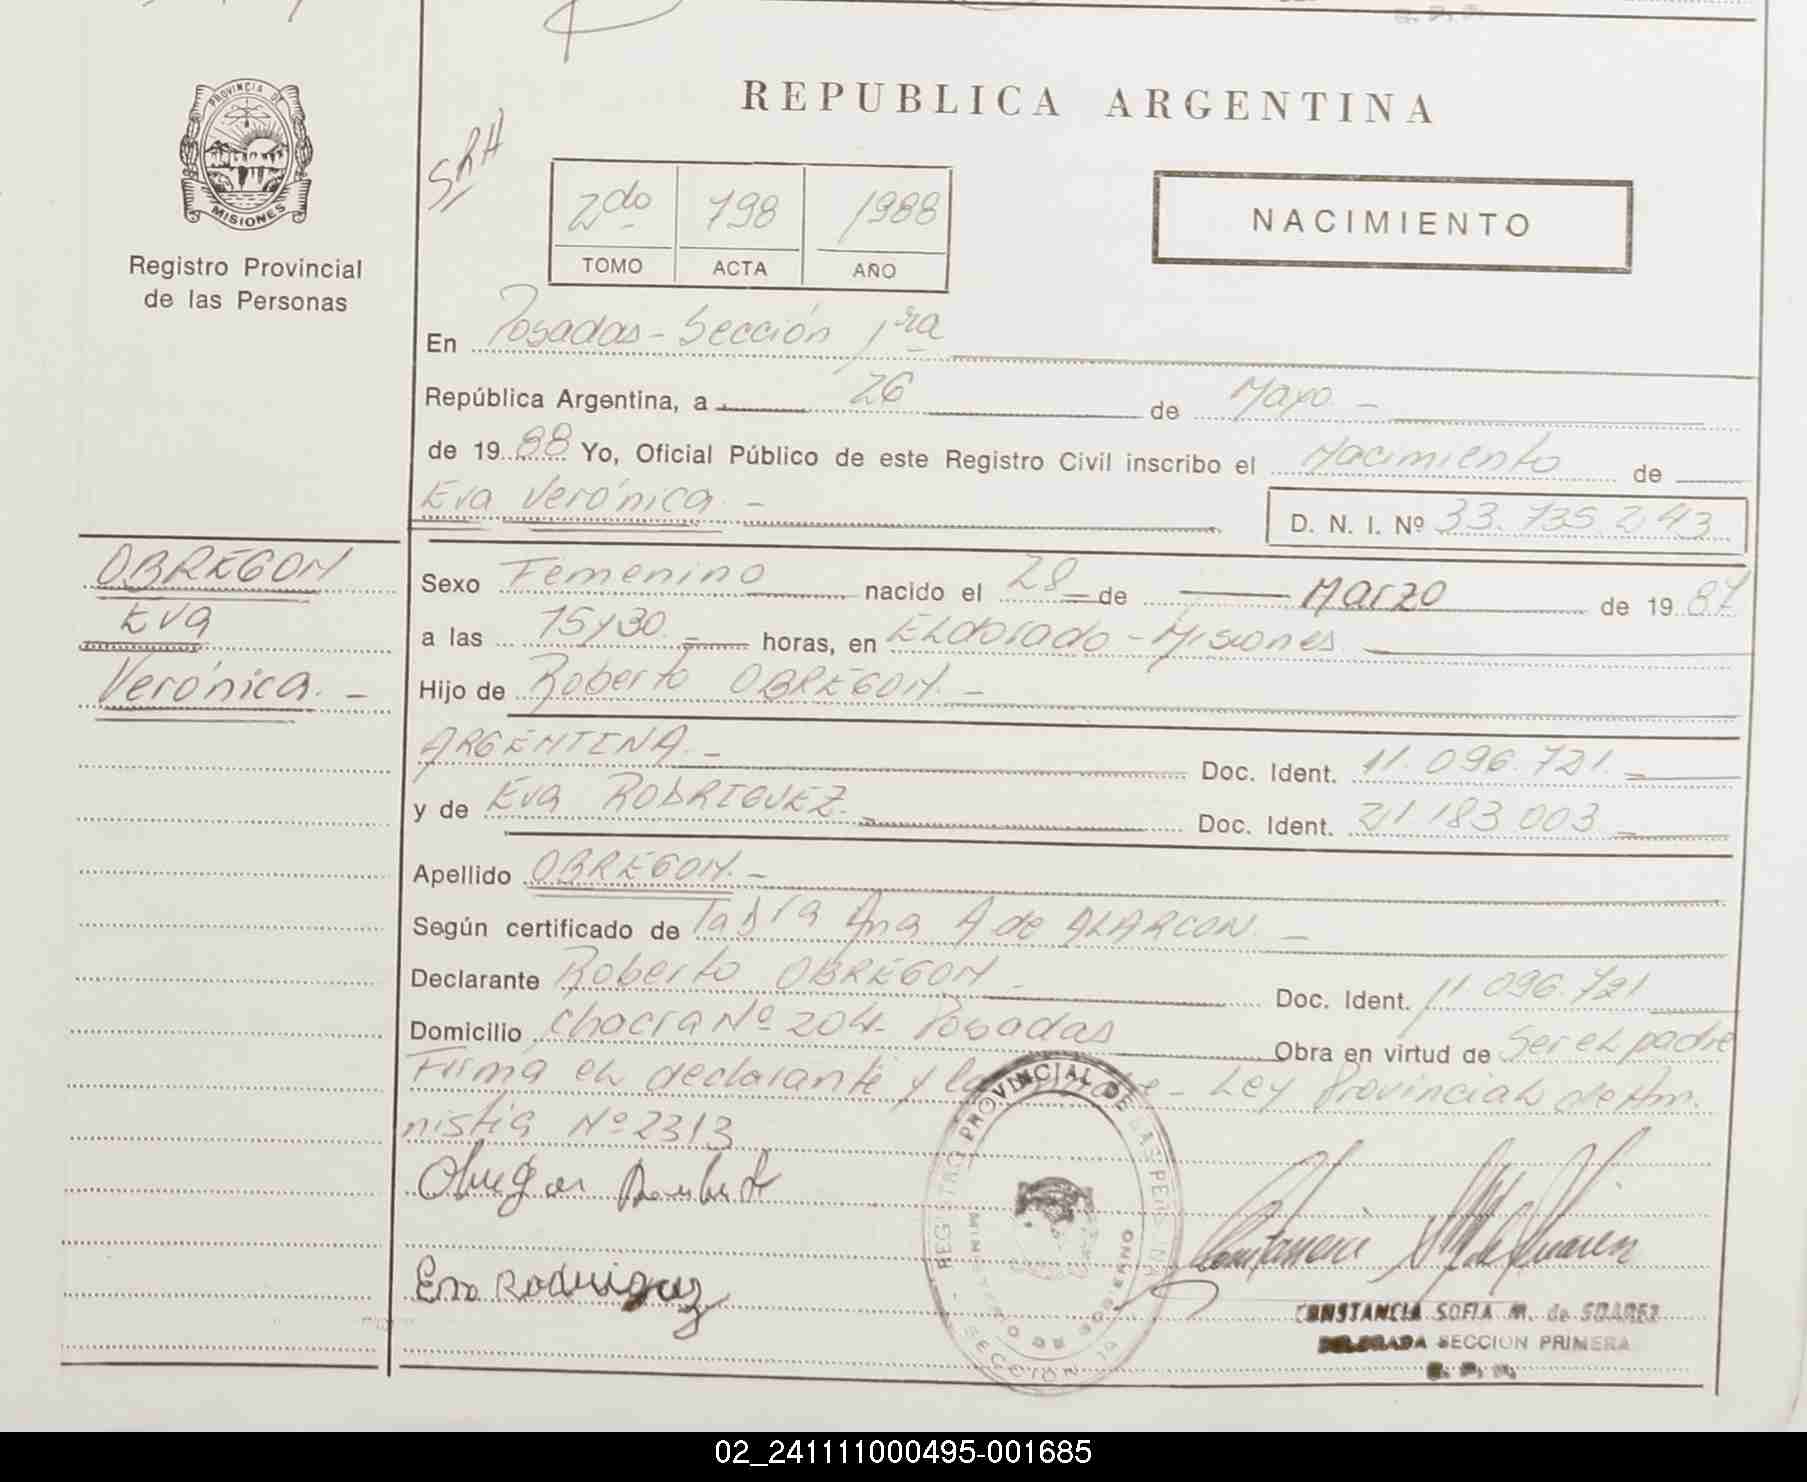 PROVINCIA DE
MISIONES
Registro Provincial
de las Personas
REPUBLICA ARGENTINA
SRH
2do 798 1988
TOMO ACTA AÑO
NACIMIENTO
En Posadas - Sección 1ra
República Argentina, a 26 de Mayo -
de 1988 Yo, Oficial Público de este Registro Civil inscribo el Nacimiento de
Eva Verónica. -
D. N. I. Nº 33.735.243
OBREGON
Eva
Verónica. -
Sexo Femenino nacido el 28 de Marzo de 1987
a las 15y30 - horas, en Eldorado - Misiones
Hijo de Roberto OBREGON. -
ARGENTINA. - Doc. Ident. 11.096.721. -
y de Eva RODRIGUEZ. - Doc. Ident. 21.183.003 -
Apellido OBREGON. -
Según certificado de Ana A de ALARCON. -
Declarante Roberto OBREGON - Doc. Ident. 11.096.721
Domicilio Chacra Nº 204 - Posadas Obra en virtud de Ser el padre
Firma el declarante y la - Ley Provincial de Am-
nistia Nº 2313
Obregon Roberto
Eva Rodriguez
REGISTRO PROVINCIAL DE LAS PERSONAS
MINISTERIO DE GOBIERNO
SECCION 1a
CONSTANCIA SOFIA M. de SUAREZ
DELEGADA SECCION PRIMERA
02_241111000495-001685